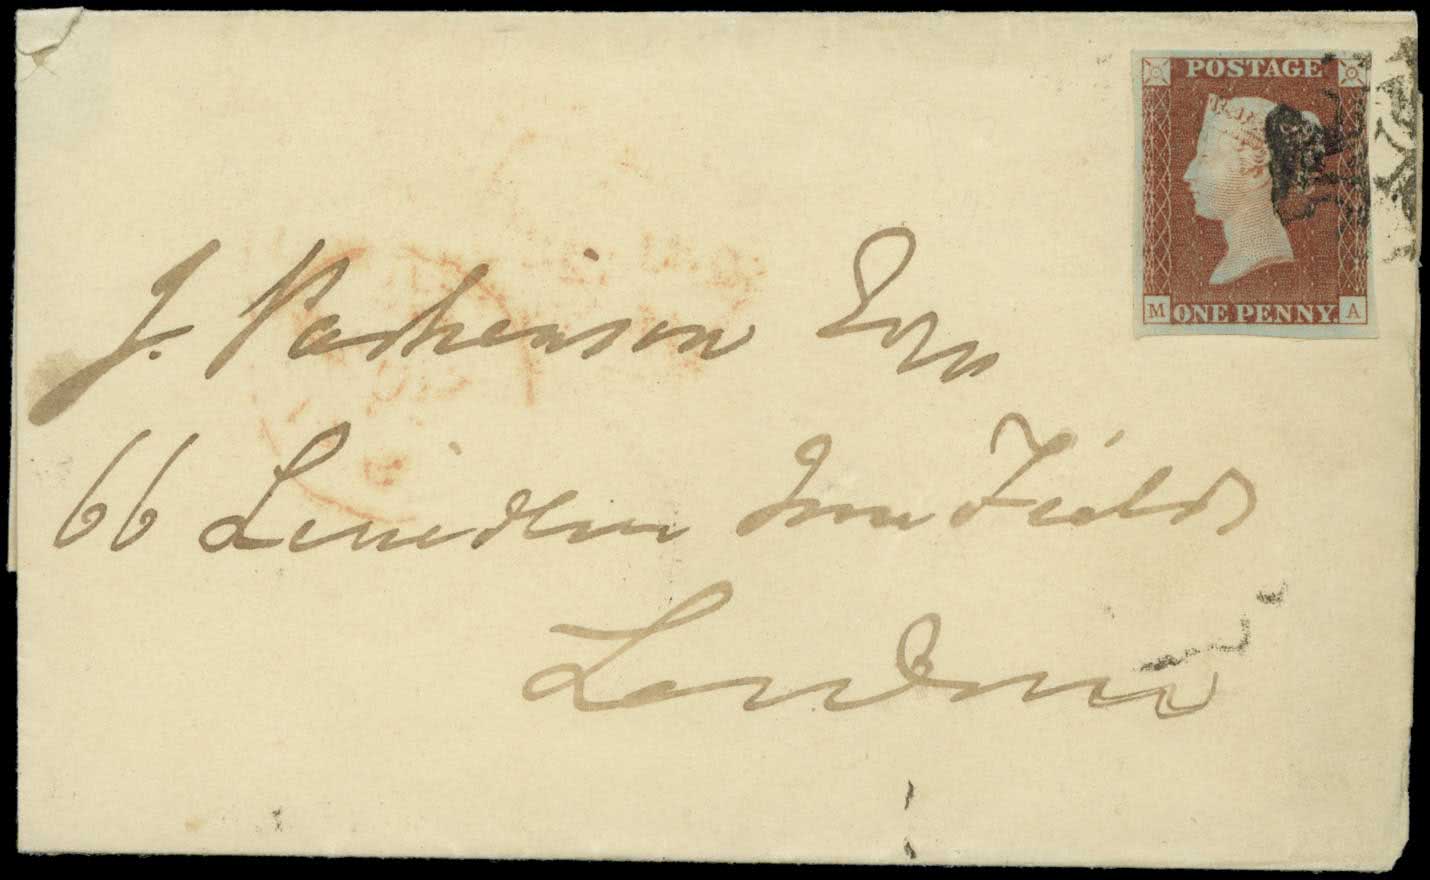 POSTAGE
M ONE PENNY. A
J. Parkinson Esqr
66 Lincoln Inn Fields
London